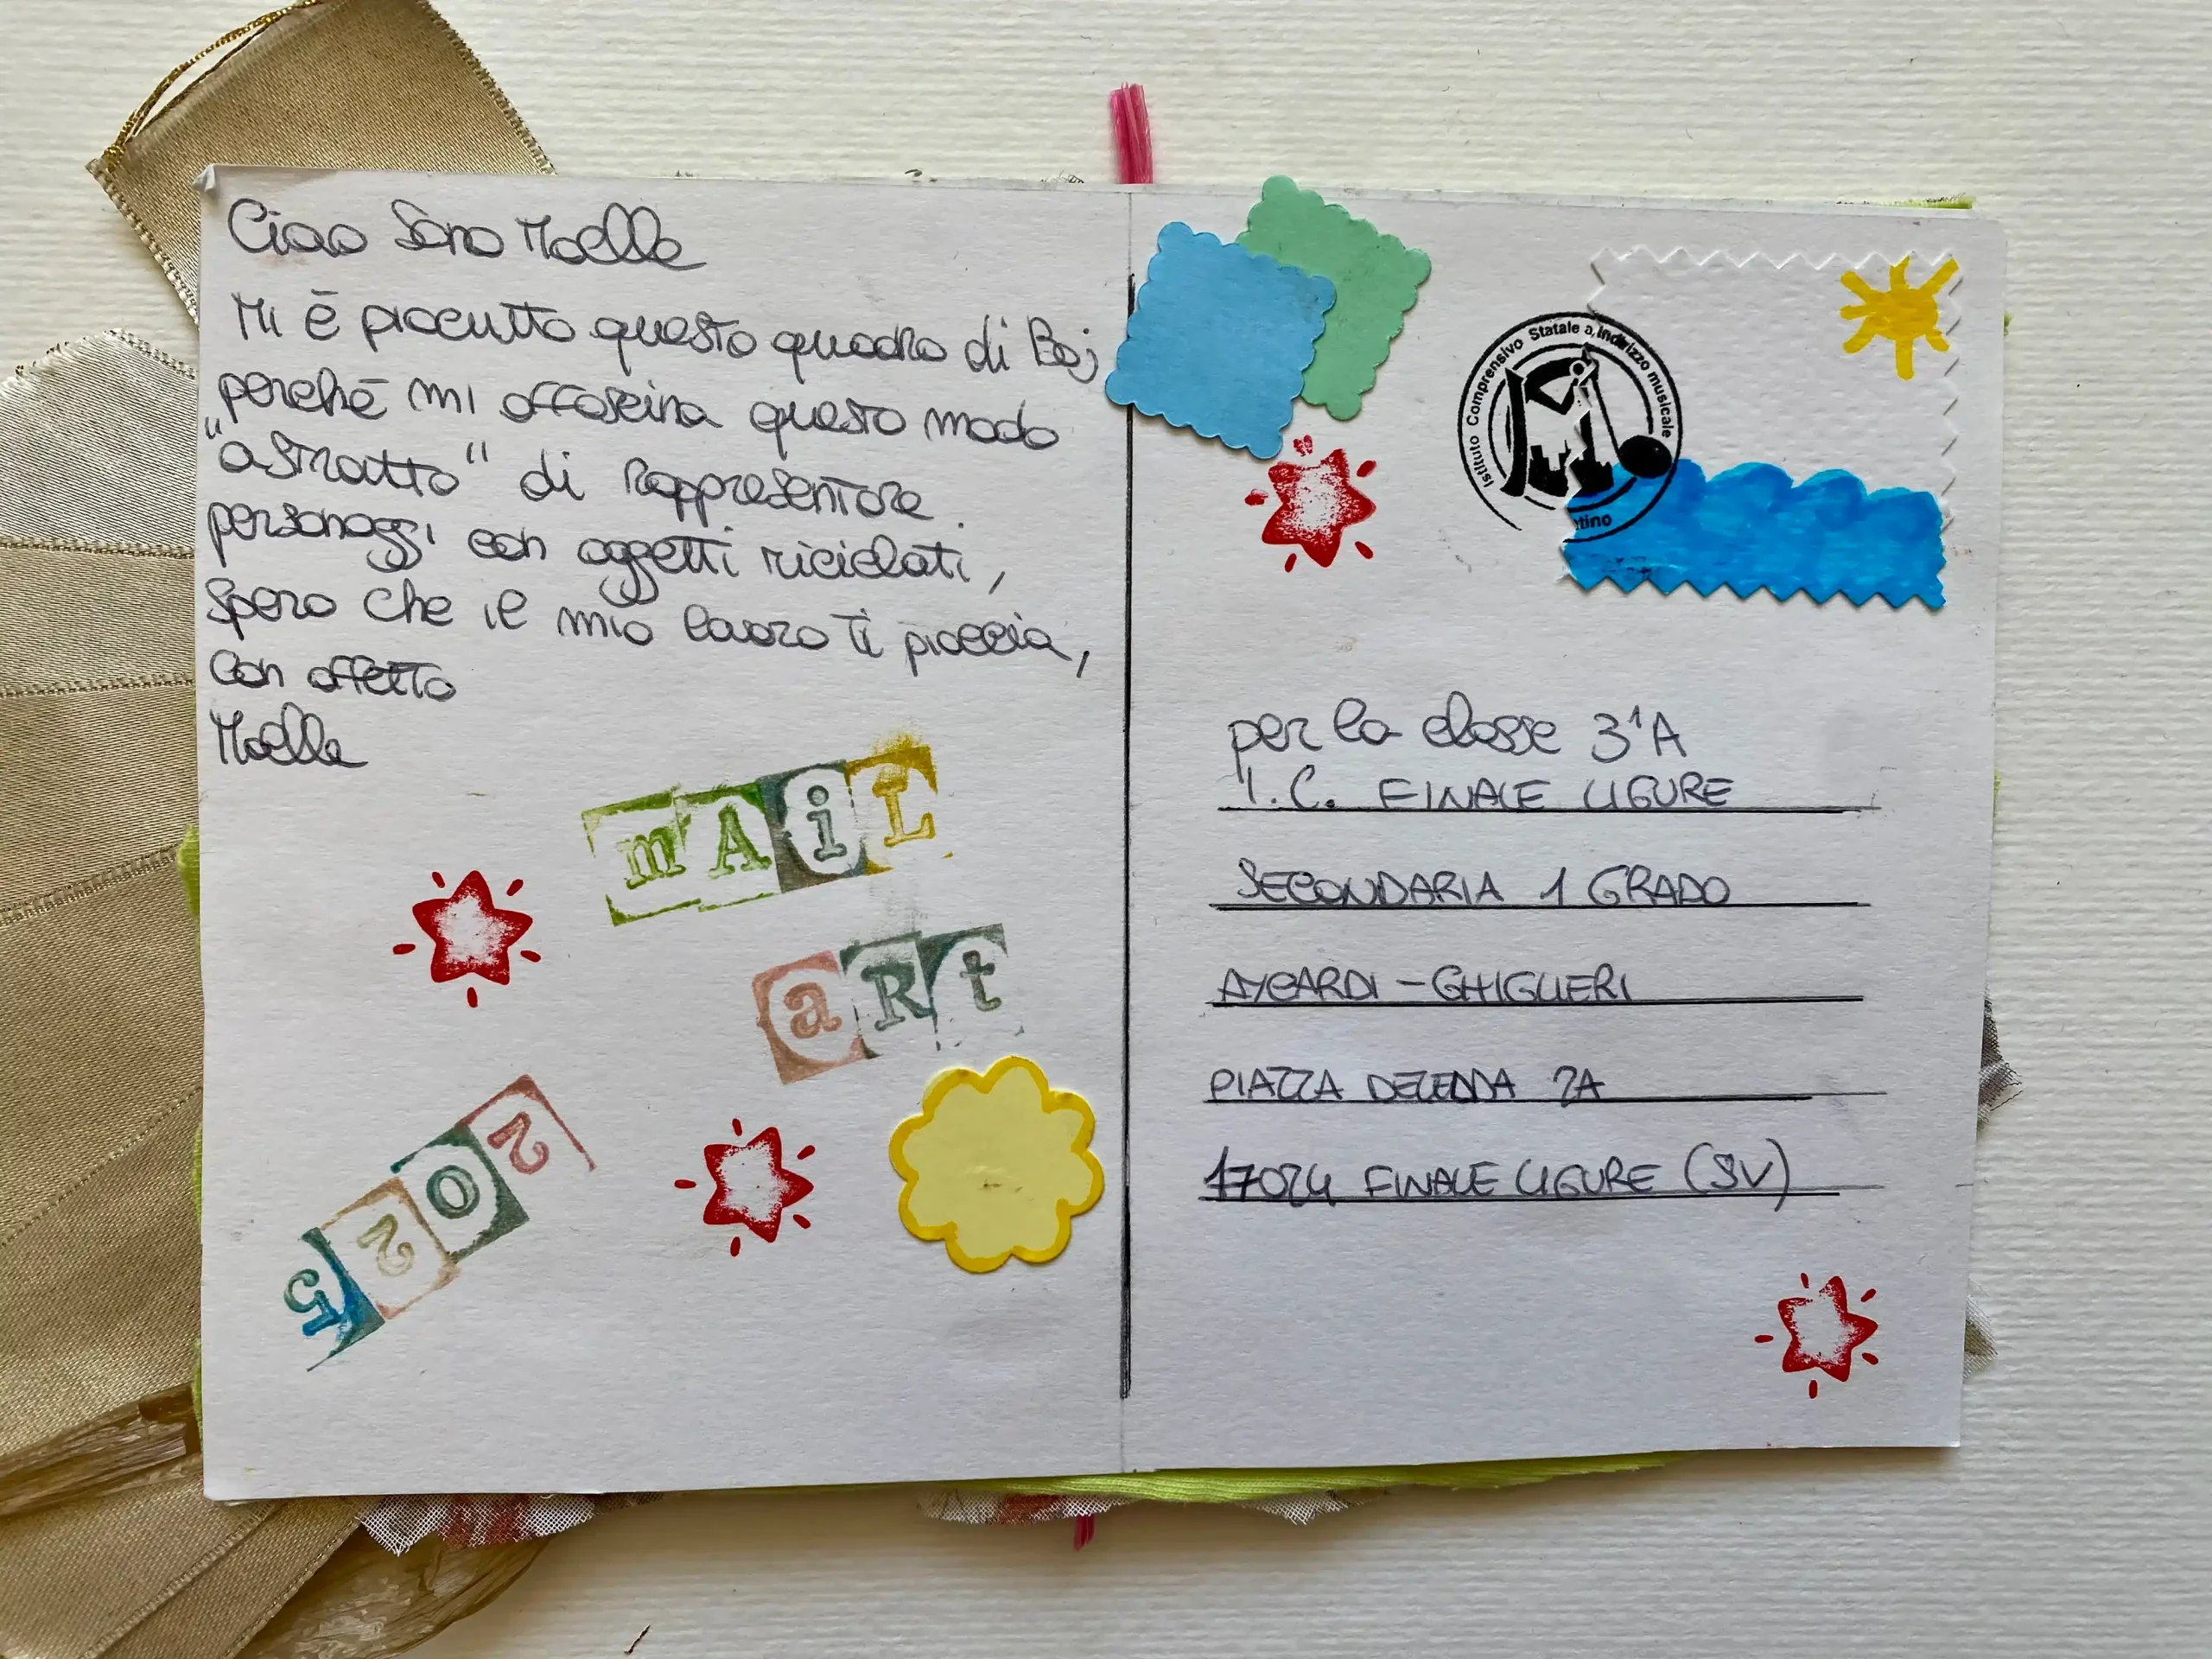 Ciao Sono Maelle
Mi è piaciutto questo quadro di Baj
perchè mi affascina questo modo
"astratto" di rappresentare
personaggi con oggetti riciclati,
spero che il mio lavoro ti piaccia,
con affetto
Maelle
mAiL
aRt
2025
Istituto Comprensivo Statale a Indirizzo musicale
tino
per la classe 3ªA
I.C. FINALE LIGURE
SECONDARIA 1 GRADO
AYCARDI - GHIGLIERI
PIAZZA DELEDDA 2A
17024 FINALE LIGURE (SV)